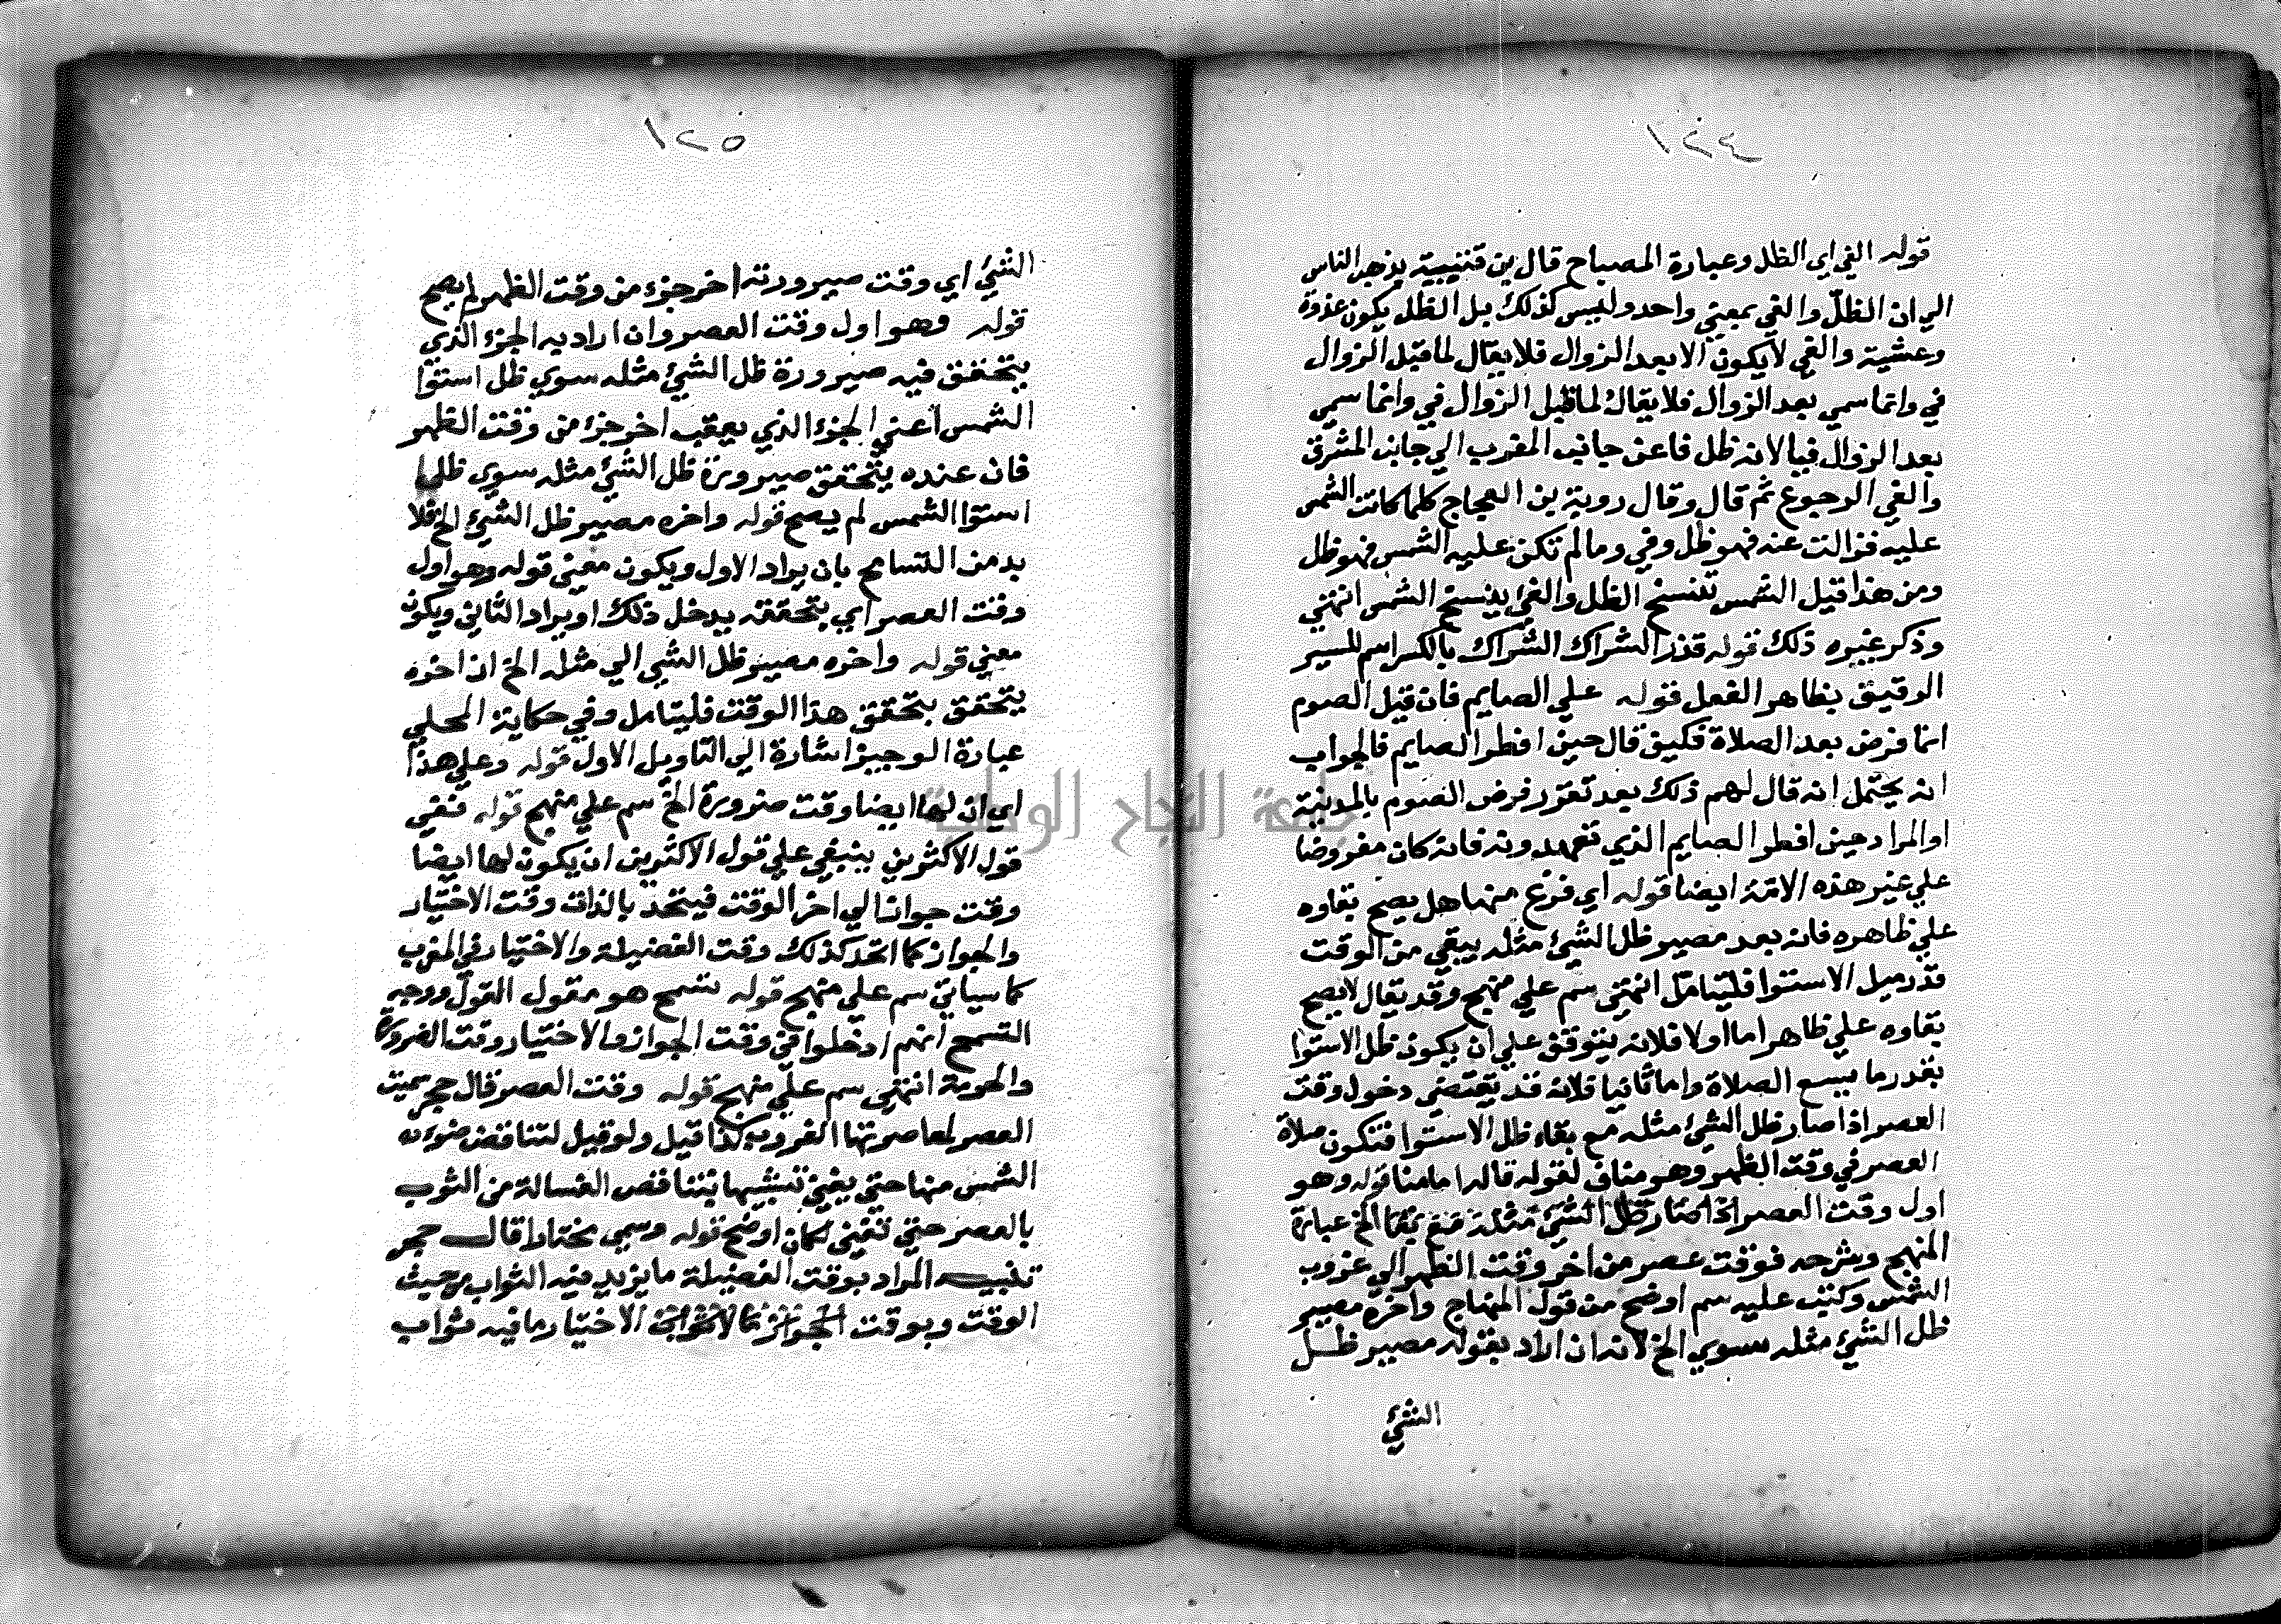 ١٢٤
قوله الفي اي الظل وعبارة المصباح قال بن قتيبية يذهب الناس
الي ان الظل والفي بمعني واحد وليس كذلك بل الظل يكون غدوة
وعشية والفي لا يكون الا بعد الزوال فلا يقال لما قبل الزوال
في وانما سمي بعد الزوال فلا يقال لما قبل الزوال في وانما سمي
بعد الزوال فيا لانه ظل فا عن جانب المغرب الي جانب المشرق
والفي الرجوع ثم قال وقال روبة بن العجاج كلما كانت الشمس
عليه فزالت عنه فهو ظل وفي وما لم تكن عليه الشمس فهو ظل
ومن هذا قيل الشمس تنسخ الظل والفئ ينسخ الشمس انتهي
وذكر غيره ذلك قوله قدر الشراك الشراك بالكسر اسم للسير
الرقيق بظاهر الفعل قوله علي الصايم فان قيل الصوم
انما فرض بعد الصلاة فكيف قال حين افطر الصايم فالجواب
انه يحتمل انه قال لهم ذلك بعد تقرر فرض الصوم بالمدينة
او المراد حين افطر الصايم الذي تعهدونه فانه كان مفروضا
علي غير هذه الامة ايضا قوله اي فرغ منها هل يصح بقاوه
علي ظاهره فانه بعد مصير ظل الشئ مثله يبقي من الوقت
قدر ميل الاستوا فليتامل انتهي سم علي منهج وقد يقال لا يصح
بقاوه علي ظاهر اما اولا فلانه يتوقف علي ان يكون ظل الاستوا
بقدر ما يسع الصلاة واما ثانيا فلانه قد يقتضي دخول وقت
العصر اذا صار ظل الشئ مثله مع بقاء ظل الاستوا فتكون صلاة
العصر في وقت الظهر وهو مناف لقوله قاله امامنا قوله وهو
اول وقت العصر اذا صار ظل الشئ مثله الخ عبارة
المنهج وشرحه فوقت عصر من اخر وقت الظهر الي غروب
الشمس وكتب عليه سم اوضح من قول المنهاج واخره مصير
ظل الشئ مثله سوي الخ لانه ان اراد بقوله مصير ظل
الشئ
١٢٥
الشئ اي وقت صيرورته اخر جزء من وقت الظهر لم يصح
قوله وهو اول وقت العصر وان اراد به الجزء الذي
يتحقق فيه صيرورة ظل الشئ مثله سوي ظل استوا
الشمس اعني الجزء الذي يعقب اخر جزء من وقت الظهر
فان عنده يتحقق صيرورة ظل الشئ مثله سوي ظل
استوا الشمس لم يصح قوله واخره مصير ظل الشئ الخ فلا
بد من التسامح بان يراد الاول ويكون معني قوله وهو اول
وقت العصر اي بتحققه يدخل ذلك او يراد الثاني ويكون
معني قوله واخره مصير ظل الشي الي مثله الخ ان اخره
يتحقق بتحقق هذا الوقت فليتامل وفي حكاية المحلي
عبارة الوجيز اشارة الي التاويل الاول قوله وعلي هذا
اي ان لها ايضا وقت ضرورة الخ سم علي منهج قوله ففي
قول الاكثرين ينبغي علي قول الاكثرين ان يكون لها ايضا
وقت جواز الي اخر الوقت فيتحد بالذات وقت الاختيار
والجواز كما اتحد كذلك وقت الفضيلة والاختيار في المغرب
كما سياتي سم علي منهج قوله تسمح هو مقول القول ووجه
التسمح انهم ادخلوا في وقت الجواز والاختيار وقت الضرورة
والحرمة انتهي سم علي منهج قوله وقت العصر قال حجر سميت
العصر لمعاصرتها الغروب كذا قيل ولو قيل لتناقض ضوء
الشمس منها حتي يفني تشبيها بتناقص الغسالة من الثوب
بالعصر حتي تفني لكان اوضح قوله وسمي مختارا قال حجر
تنبيه المراد بوقت الفضيلة ما يزيد فيه الثواب من حيث
الوقت وبوقت الاختيار ما فيه ثواب